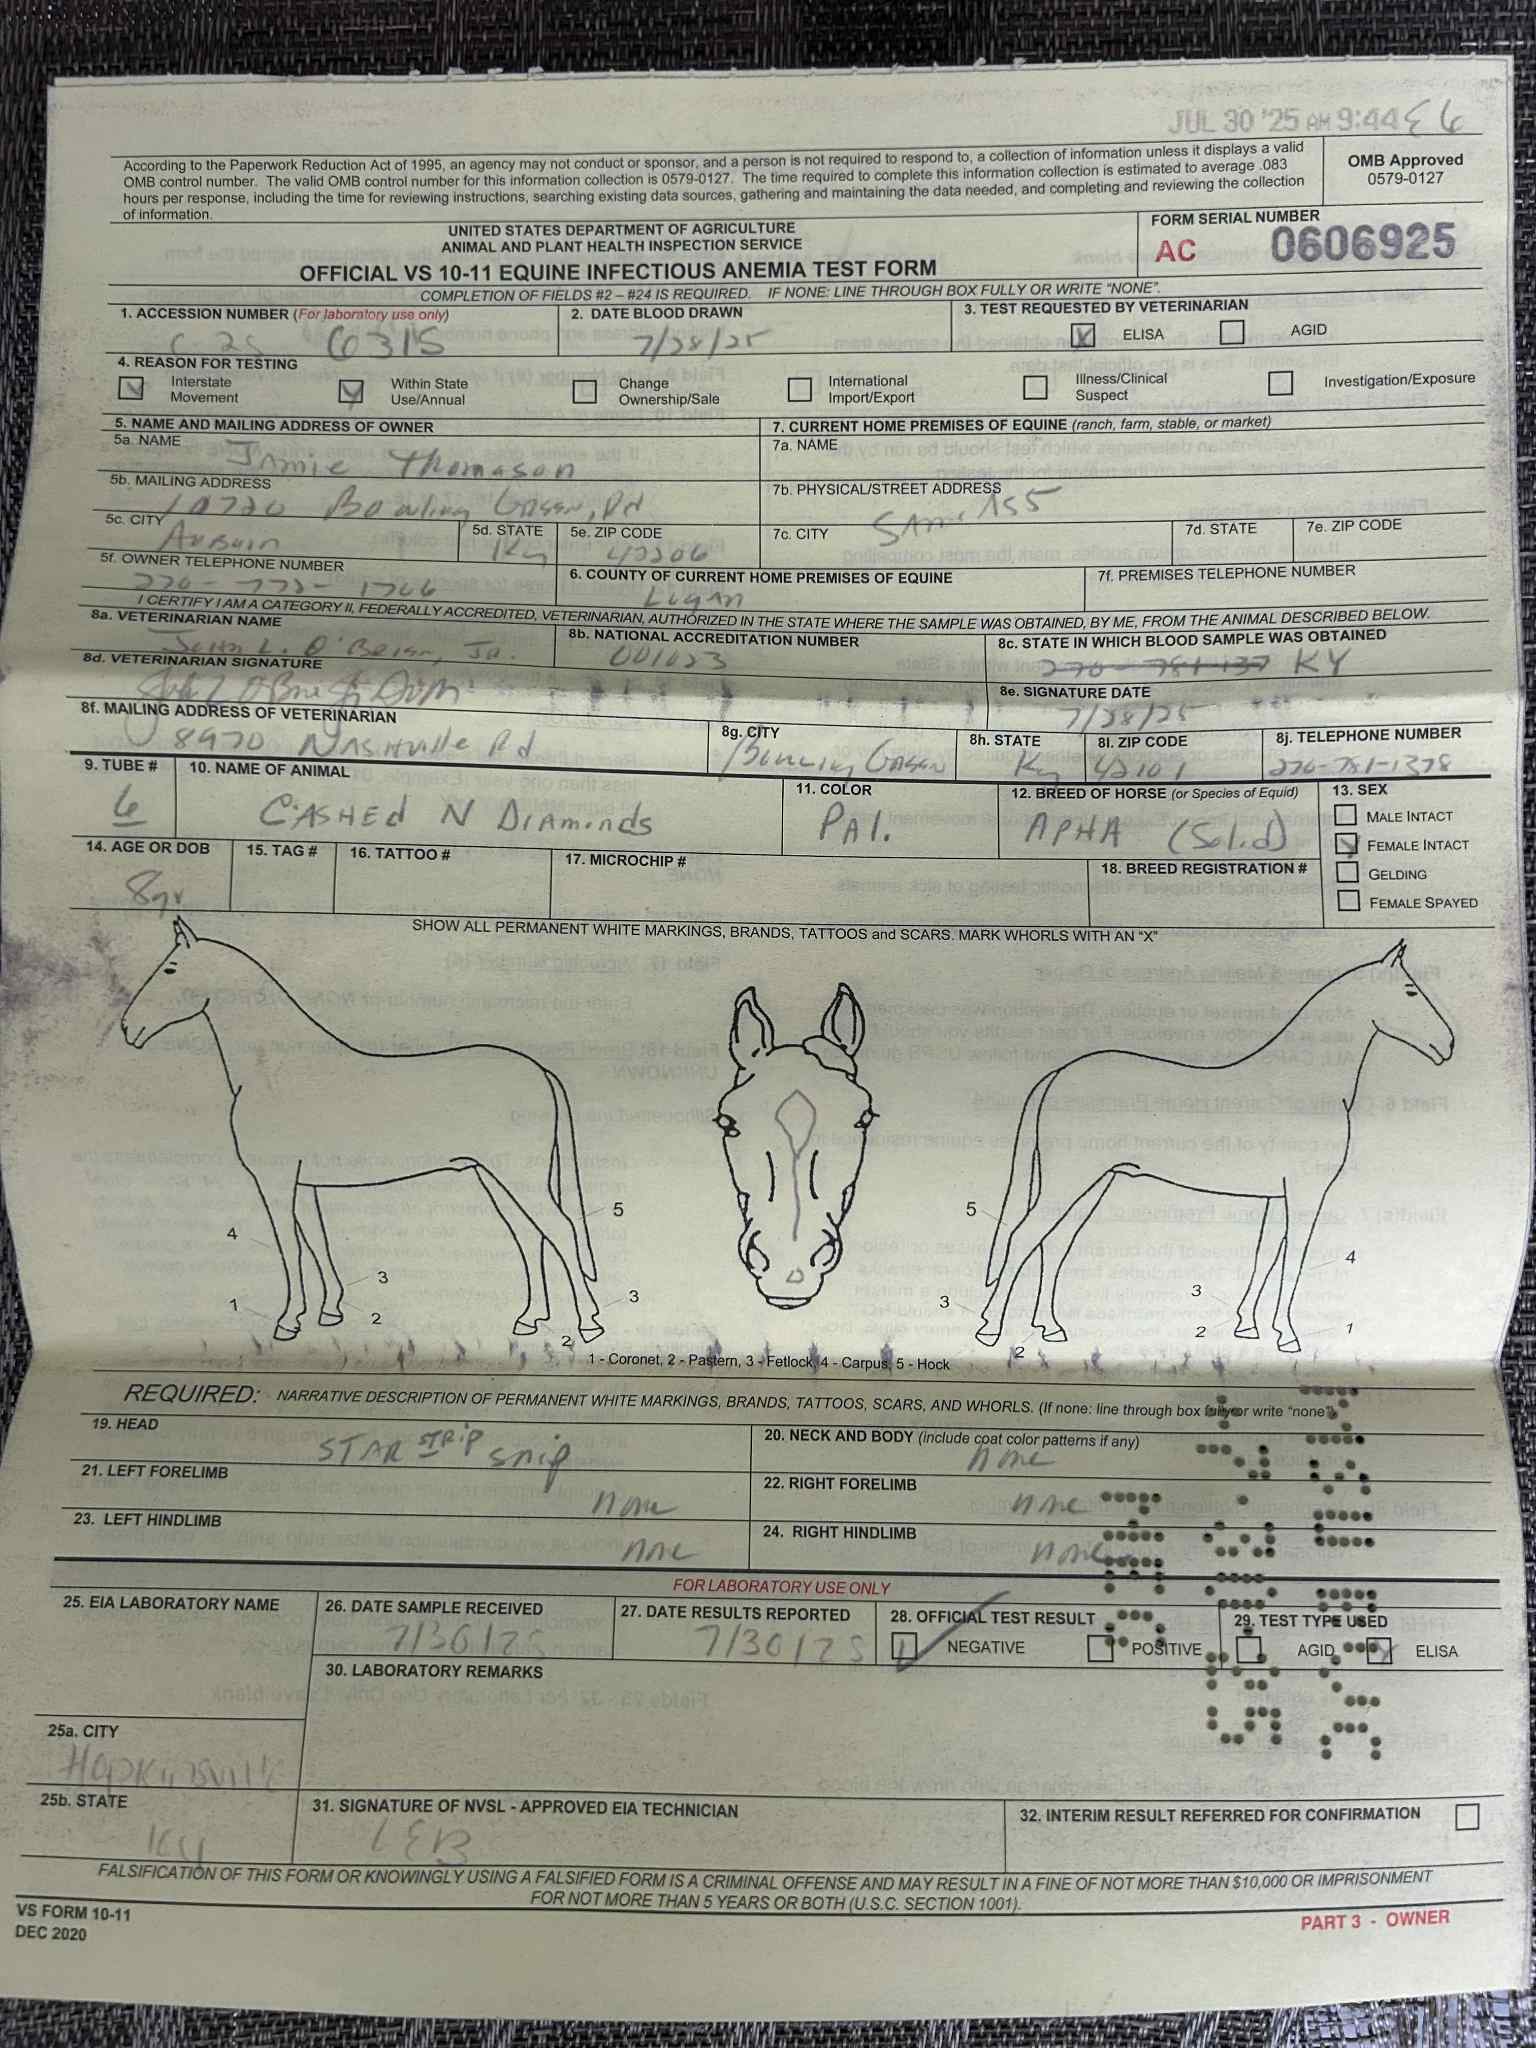 JUL 30 '25 AM 9:44 E 6
According to the Paperwork Reduction Act of 1995, an agency may not conduct or sponsor, and a person is not required to respond to, a collection of information unless it displays a valid
OMB control number. The valid OMB control number for this information collection is 0579-0127. The time required to complete this information collection is estimated to average .083
hours per response, including the time for reviewing instructions, searching existing data sources, gathering and maintaining the data needed, and completing and reviewing the collection
of information.
OMB Approved
0579-0127
UNITED STATES DEPARTMENT OF AGRICULTURE
ANIMAL AND PLANT HEALTH INSPECTION SERVICE
OFFICIAL VS 10-11 EQUINE INFECTIOUS ANEMIA TEST FORM
FORM SERIAL NUMBER
AC 0606925
COMPLETION OF FIELDS #2 – #24 IS REQUIRED. IF NONE: LINE THROUGH BOX FULLY OR WRITE "NONE".
1. ACCESSION NUMBER (For laboratory use only)
C 25 6315
2. DATE BLOOD DRAWN
7/28/25
3. TEST REQUESTED BY VETERINARIAN
X ELISA AGID
4. REASON FOR TESTING
Interstate Movement
Within State Use/Annual
Change Ownership/Sale
International Import/Export
Illness/Clinical Suspect
Investigation/Exposure
5. NAME AND MAILING ADDRESS OF OWNER
5a. NAME
Jamie Thomason
5b. MAILING ADDRESS
10720 Bowling Green Rd
5c. CITY
Auburn
5d. STATE
Ky
5e. ZIP CODE
42206
5f. OWNER TELEPHONE NUMBER
270-772-1766
6. COUNTY OF CURRENT HOME PREMISES OF EQUINE
Logan
7. CURRENT HOME PREMISES OF EQUINE (ranch, farm, stable, or market)
7a. NAME
7b. PHYSICAL/STREET ADDRESS
Same as 5
7c. CITY
7d. STATE
7e. ZIP CODE
7f. PREMISES TELEPHONE NUMBER
I CERTIFY I AM A CATEGORY II, FEDERALLY ACCREDITED, VETERINARIAN, AUTHORIZED IN THE STATE WHERE THE SAMPLE WAS OBTAINED, BY ME, FROM THE ANIMAL DESCRIBED BELOW.
8a. VETERINARIAN NAME
John L. O'Brien, Jr.
8b. NATIONAL ACCREDITATION NUMBER
001023
8c. STATE IN WHICH BLOOD SAMPLE WAS OBTAINED
270-781-137 KY
8d. VETERINARIAN SIGNATURE
8e. SIGNATURE DATE
7/28/25
8f. MAILING ADDRESS OF VETERINARIAN
8970 Nashville Rd
8g. CITY
Bowling Green
8h. STATE
Ky
8I. ZIP CODE
42101
8j. TELEPHONE NUMBER
270-781-1378
9. TUBE #
6
10. NAME OF ANIMAL
CASHED N DIAMONDS
11. COLOR
PAl.
12. BREED OF HORSE (or Species of Equid)
APHA (Solid)
13. SEX
MALE INTACT
FEMALE INTACT
GELDING
FEMALE SPAYED
14. AGE OR DOB
8yr
15. TAG #
16. TATTOO #
17. MICROCHIP #
18. BREED REGISTRATION #
SHOW ALL PERMANENT WHITE MARKINGS, BRANDS, TATTOOS and SCARS. MARK WHORLS WITH AN "X"
4 1 3 2 5 3 2
5 3 2 4 3 2 1
1 - Coronet, 2 - Pastern, 3 - Fetlock, 4 - Carpus, 5 - Hock
REQUIRED: NARRATIVE DESCRIPTION OF PERMANENT WHITE MARKINGS, BRANDS, TATTOOS, SCARS, AND WHORLS. (If none: line through box fully or write "none").
19. HEAD
STAR STRIP snip
20. NECK AND BODY (include coat color patterns if any)
none
21. LEFT FORELIMB
none
22. RIGHT FORELIMB
none
23. LEFT HINDLIMB
none
24. RIGHT HINDLIMB
none
FOR LABORATORY USE ONLY
25. EIA LABORATORY NAME
26. DATE SAMPLE RECEIVED
7/30/25
27. DATE RESULTS REPORTED
7/30/25
28. OFFICIAL TEST RESULT
NEGATIVE POSITIVE
29. TEST TYPE USED
AGID ELISA
25a. CITY
Hopkinsville
30. LABORATORY REMARKS
25b. STATE
KY
31. SIGNATURE OF NVSL - APPROVED EIA TECHNICIAN
LEB
32. INTERIM RESULT REFERRED FOR CONFIRMATION
FALSIFICATION OF THIS FORM OR KNOWINGLY USING A FALSIFIED FORM IS A CRIMINAL OFFENSE AND MAY RESULT IN A FINE OF NOT MORE THAN $10,000 OR IMPRISONMENT
FOR NOT MORE THAN 5 YEARS OR BOTH (U.S.C. SECTION 1001).
VS FORM 10-11
DEC 2020
PART 3 - OWNER